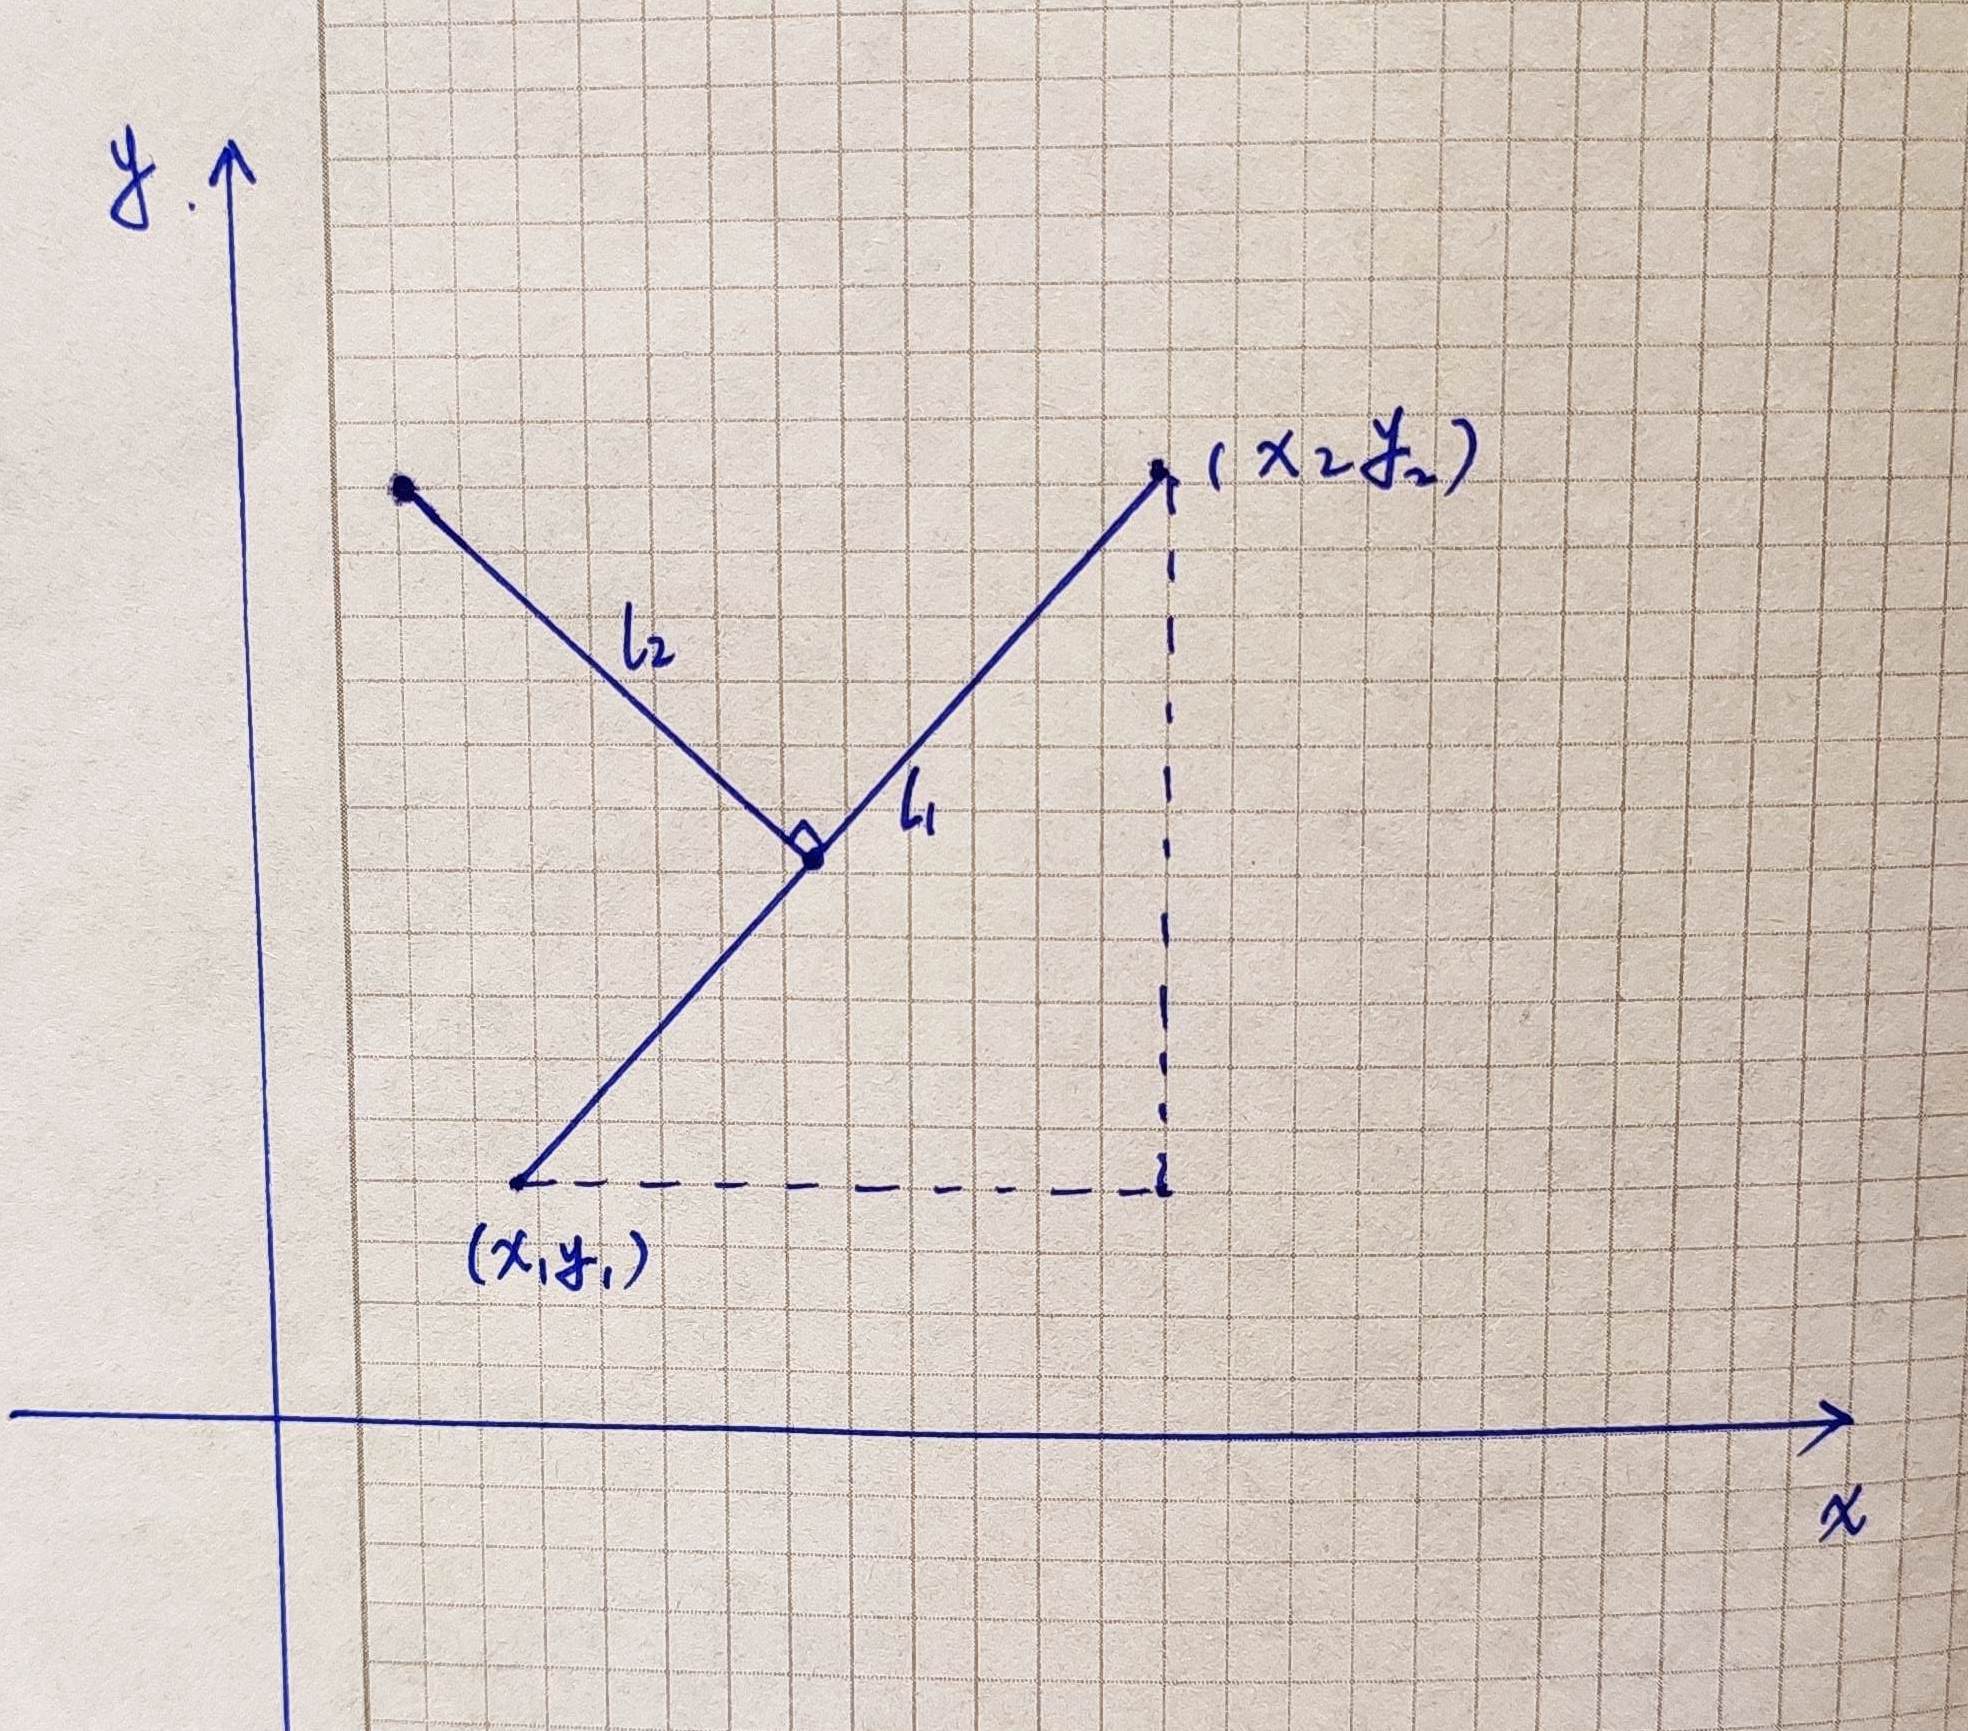 y
(x₂y₂)
l₂
l₁
(x₁y₁)
x